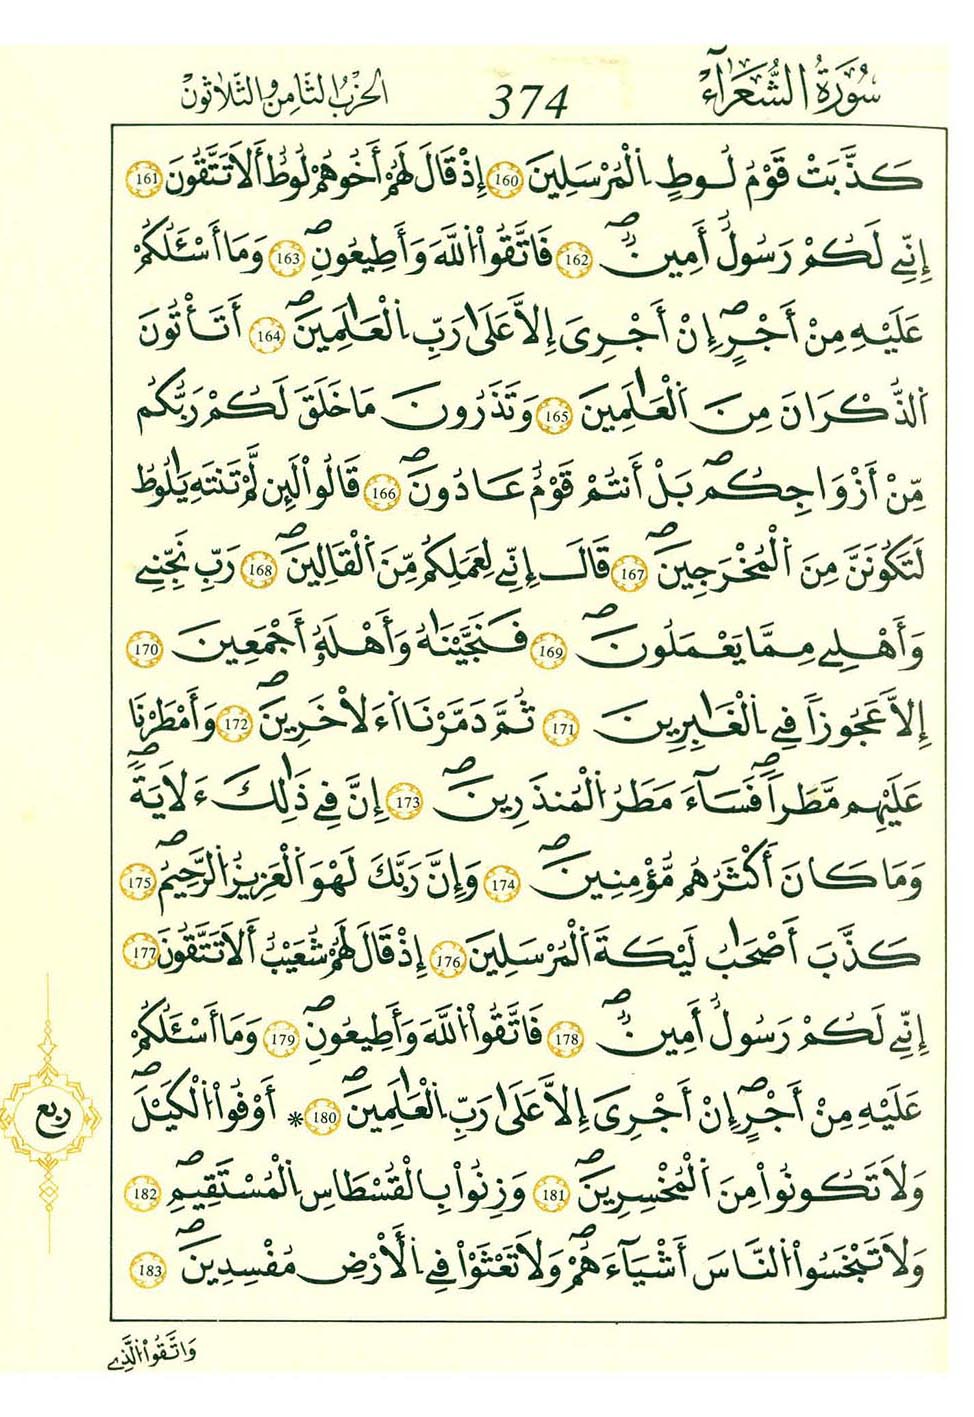 سُورَةُ الشُّعَرَآءِ 374 الحِزْبُ الثَّامِنُ وَالثَّلَاثُونَ
كَذَّبَتْ قَوْمُ لُوطٍ اِ۬لْمُرْسَلِينَ 160 إِذْ قَالَ لَهُمُۥٓ أَخُوهُمْ لُوطٌ أَلَا تَتَّقُونَ 161
إِنِّے لَكُمْ رَسُولٌ أَمِينٌۖ 162 فَاتَّقُواْ اُ۬للَّهَ وَأَطِيعُونِۖ 163 وَمَا أَسْـَٔلُكُمْ
عَلَيْهِ مِنْ أَجْرٍۖ اِنْ أَجْرِىَ إِلَّا عَلَىٰ رَبِّ اِ۬لْعَٰلَمِينَۖ 164 أَتَأْتُونَ
اَ۬لذُّكْرَانَ مِنَ اَ۬لْعَٰلَمِينَ 165 وَتَذَرُونَ مَا خَلَقَ لَكُمْ رَبُّكُم
مِّنْ أَزْوَاجِكُمۖ بَلْ أَنتُمْ قَوْمٌ عَادُونَۖ 166 قَالُواْ لَئِن لَّمْ تَنتَهِ يَٰلُوطُ
لَتَكُونَنَّ مِنَ اَ۬لْمُخْرَجِينَۖ 167 قَالَ إِنِّے لِعَمَلِكُم مِّنَ اَ۬لْقَالِينَۖ 168 رَبِّ نَجِّنِے
وَأَهْلِے مِمَّا يَعْمَلُونَۖ 169 فَنَجَّيْنَٰهُ وَأَهْلَهُۥٓ أَجْمَعِينَ 170
إِلَّا عَجُوزاً فِے اِ۬لْغَٰبِرِينَ 171 ثُمَّ دَمَّرْنَا اَ۬ءَلْأَخَرِينَۖ 172 وَأَمْطَرْنَا
عَلَيْهِم مَّطَراًۖ فَسَآءَ مَطَرُ اُ۬لْمُنذَرِينَۖ 173 إِنَّ فِے ذَٰلِكَ ءَلَايَةًۖ
وَمَا كَانَ أَكْثَرُهُم مُّؤْمِنِينَۖ 174 وَإِنَّ رَبَّكَ لَهْوَ اَ۬لْعَزِيزُ اُ۬لرَّحِيمُۖ 175
كَذَّبَ أَصْحَٰبُ لَيْكَةَ اَ۬لْمُرْسَلِينَ 176 إِذْ قَالَ لَهُمْ شُعَيْبٌ أَلَا تَتَّقُونَ 177
إِنِّے لَكُمْ رَسُولٌ أَمِينٌۖ 178 فَاتَّقُواْ اُ۬للَّهَ وَأَطِيعُونِۖ 179 وَمَا أَسْـَٔلُكُمْ
عَلَيْهِ مِنْ أَجْرٍۖ اِنْ أَجْرِىَ إِلَّا عَلَىٰ رَبِّ اِ۬لْعَٰلَمِينَۖ 180 * أَوْفُواْ اُ۬لْكَيْلَۖ
ربع
وَلَا تَكُونُواْ مِنَ اَ۬لْمُخْسِرِينَۖ 181 وَزِنُواْ بِالْقُسْطَاسِ اِ۬لْمُسْتَقِيمِۖ 182
وَلَا تَبْخَسُواْ اُ۬لنَّاسَ أَشْيَآءَهُمْۖ وَلَا تَعْثَوْاْ فِے اِ۬لْأَرْضِ مُفْسِدِينَۖ 183
وَاتَّقُواْ اُ۬لَّذِے